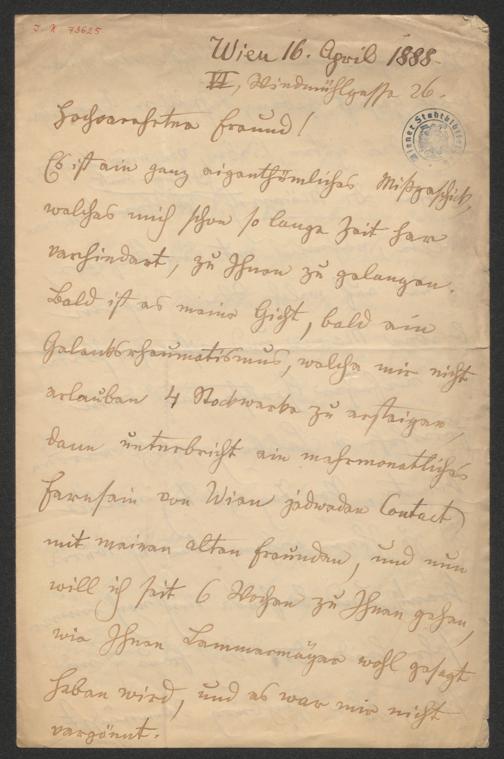 I. N. 73625
Wien 16. April 1888.
VI, Windmühlgasse 26.
Hochverehrter Freund!
Es ist ein ganz eigenthümliches Mißgeschick,
welches mich schon so lange Zeit her
verhindert, zu Ihnen zu gelangen.
Bald ist es meine Gicht, bald ein
Gelenksrheumatismus, welche mir nicht
erlauben 4 Stockwerke zu ersteigen,
dann unterbricht ein mehrmonatliches
Fernsein von Wien jedweden Contact
mit meinen alten Freunden, und nun
will ich seit 6 Wochen zu Ihnen gehen,
wie Ihnen Lammermayer wohl gesagt
haben wird, und es war mir nicht
vergönnt.